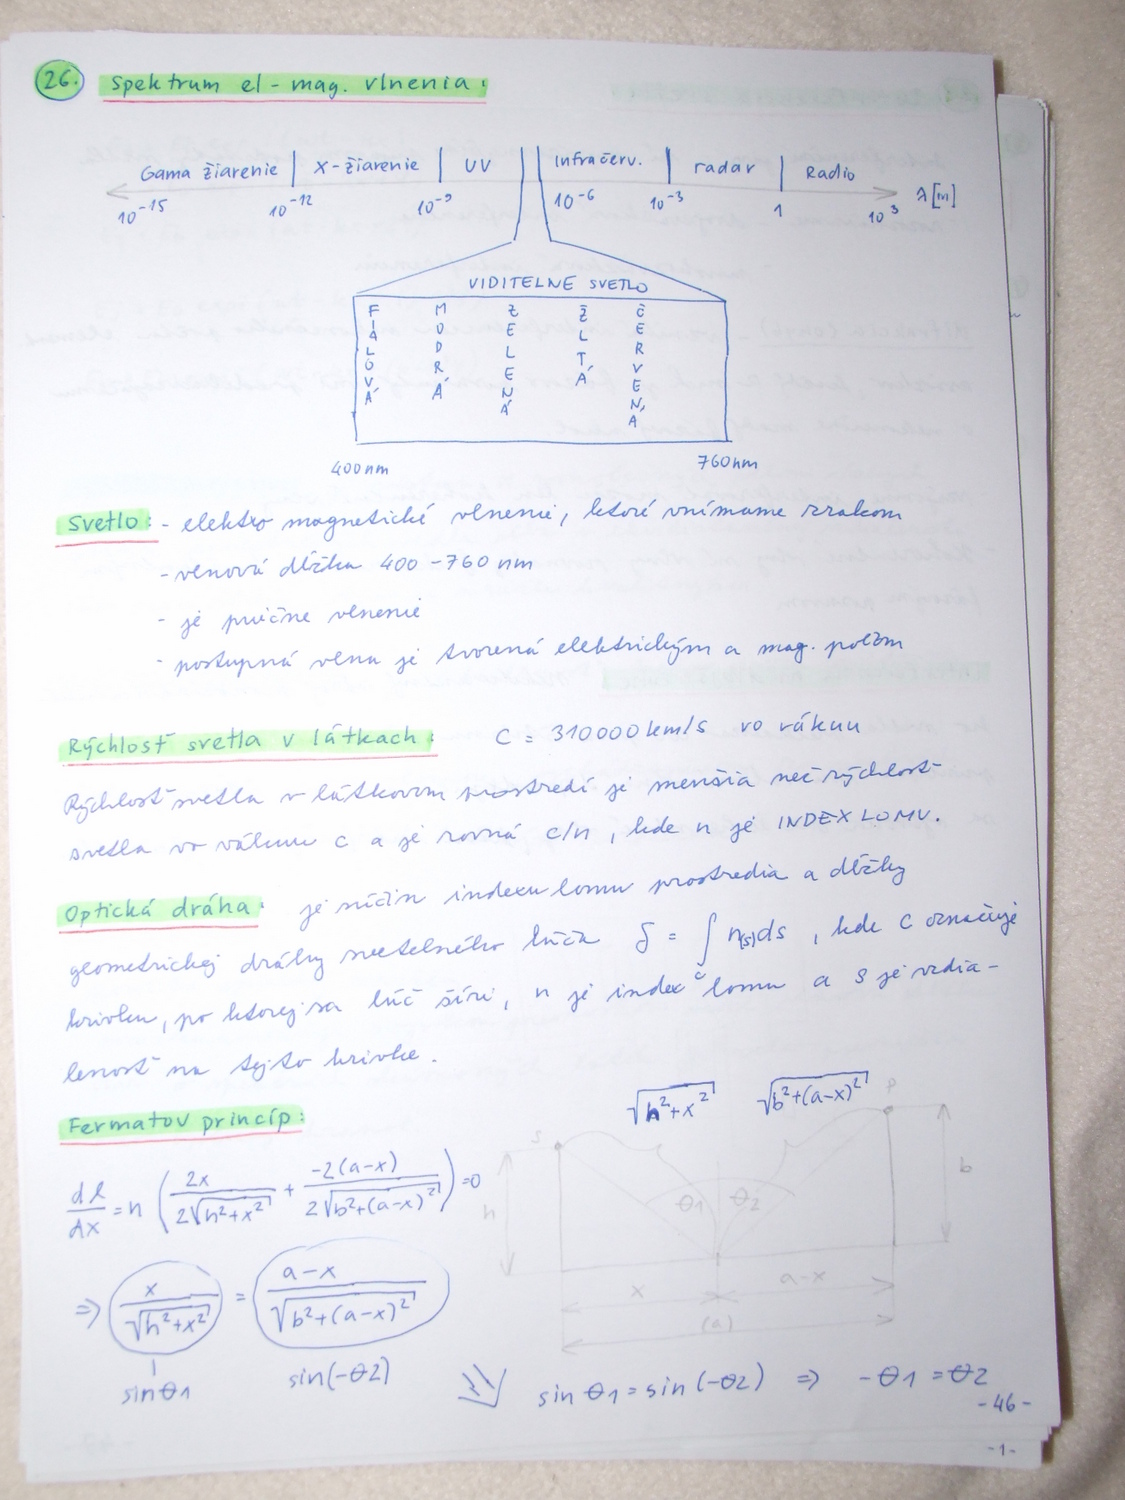 26. Spektrum el-mag. vlnenia:
Gama žiarenie | X-žiarenie | UV | Infračerv. | radar | Radio
10⁻¹⁵ 10⁻¹² 10⁻⁹ 10⁻⁶ 10⁻³ 1 10³ λ[m]
VIDITEĽNÉ SVETLO
FIALOVÁ MODRÁ ZELENÁ ŽLTÁ ČERVENÁ
400nm 760nm
Svetlo: - elektro magnetické vlnenie, ktoré vnímame zrakom
- vlnová dĺžka 400-760 nm
- je priečne vlnenie
- postupná vlna je tvorená elektrickým a mag. poľom
Rýchlosť svetla v látkach: C = 310000 km/s vo vákuu
Rýchlosť svetla v látkovom prostredí je menšia než rýchlosť
svetla vo vákuu c a je rovná c/n, kde n je INDEX LOMU.
Optická dráha: je súčin indexu lomu prostredia a dĺžky
geometrickej dráhy svetelného lúča δ = ∫c n(s)ds, kde C označuje
krivku, po ktorej sa lúč šíri, n je index lomu a s je vzdia-
lenosť na tejto krivke.
√(h²+x²) √(b²+(a-x)²)
Fermatov princíp:
S P
dl/dx = n (2x/(2√(h²+x²)) + -2(a-x)/(2√(b²+(a-x)²))) = 0
h θ1 θ2 b
x a-x
(a)
⇒ x/√(h²+x²) = (a-x)/√(b²+(a-x)²)
sinθ1 sin(-θ2)
sin θ1 = sin(-θ2) ⇒ -θ1 = θ2
-46-
-1-